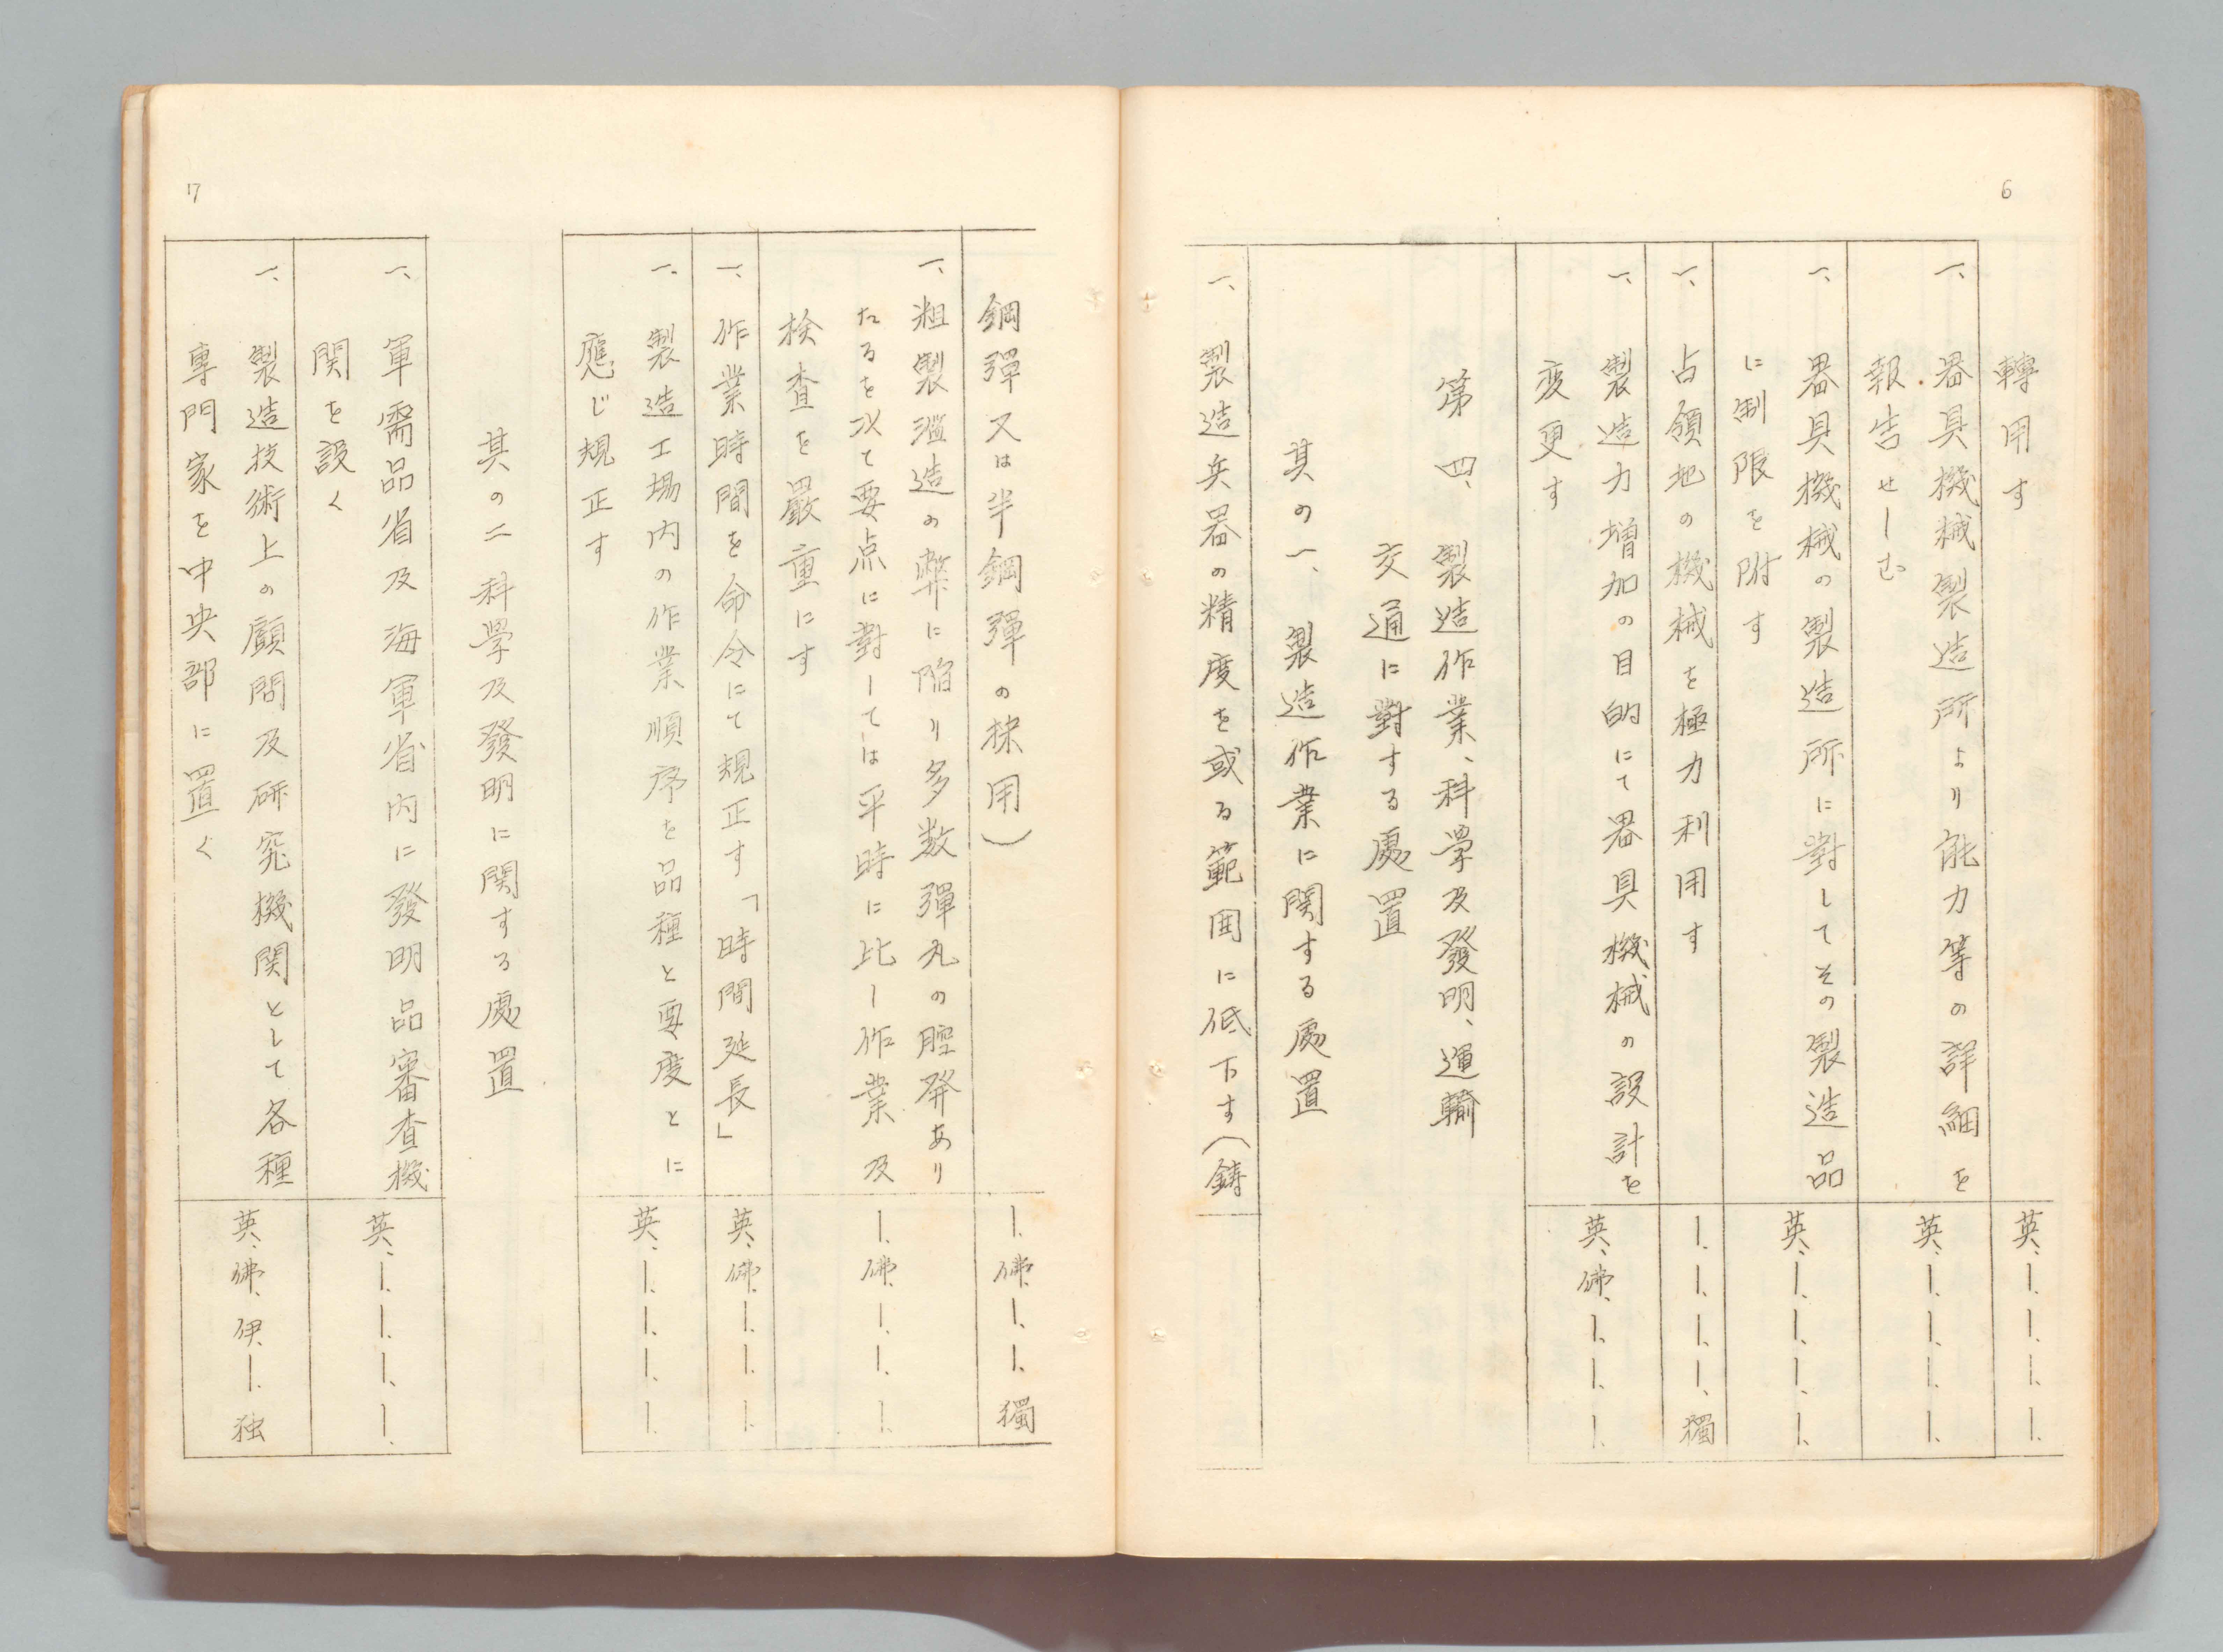 6
轉用す
英、一、一、一、一、
一、器具機械製造所より能力等の詳細を
報告せしむ
英、一、一、一、一、
一、器具機械の製造所に對してその製造品
に制限を附す
英、一、一、一、一、
一、占領地の機械を極力利用す
一、一、一、一、獨
一、製造力増加の目的にて器具機械の設計を
変更す
英、佛、一、一、一、
第四、製造作業、科學及發明、運輸
交通に對する處置
其の一、製造作業に関する處置
一、製造兵器の精度を或る範囲に低下す(鋳
7
鋼彈又は半鋼彈の採用)
一、佛、一、一、獨
一、粗製濫造の弊に陥り多数彈丸の膛発あり
たるを以て要点に對しては平時に比し作業及
検査を嚴重にす
一、佛、一、一、一
一、作業時間を命令にて規正す「時間延長」
英、佛、一、一、一
一、製造工場内の作業順序を品種と要度とに
應じ規正す
英、一、一、一、一
其の二 科學及發明に関する處置
一、軍需品省及海軍省内に發明品審査機
関を設く
英、一、一、一、一、
一、製造技術上の顧問及研究機関として各種
専門家を中央部に置く
英、佛、伊、一、独